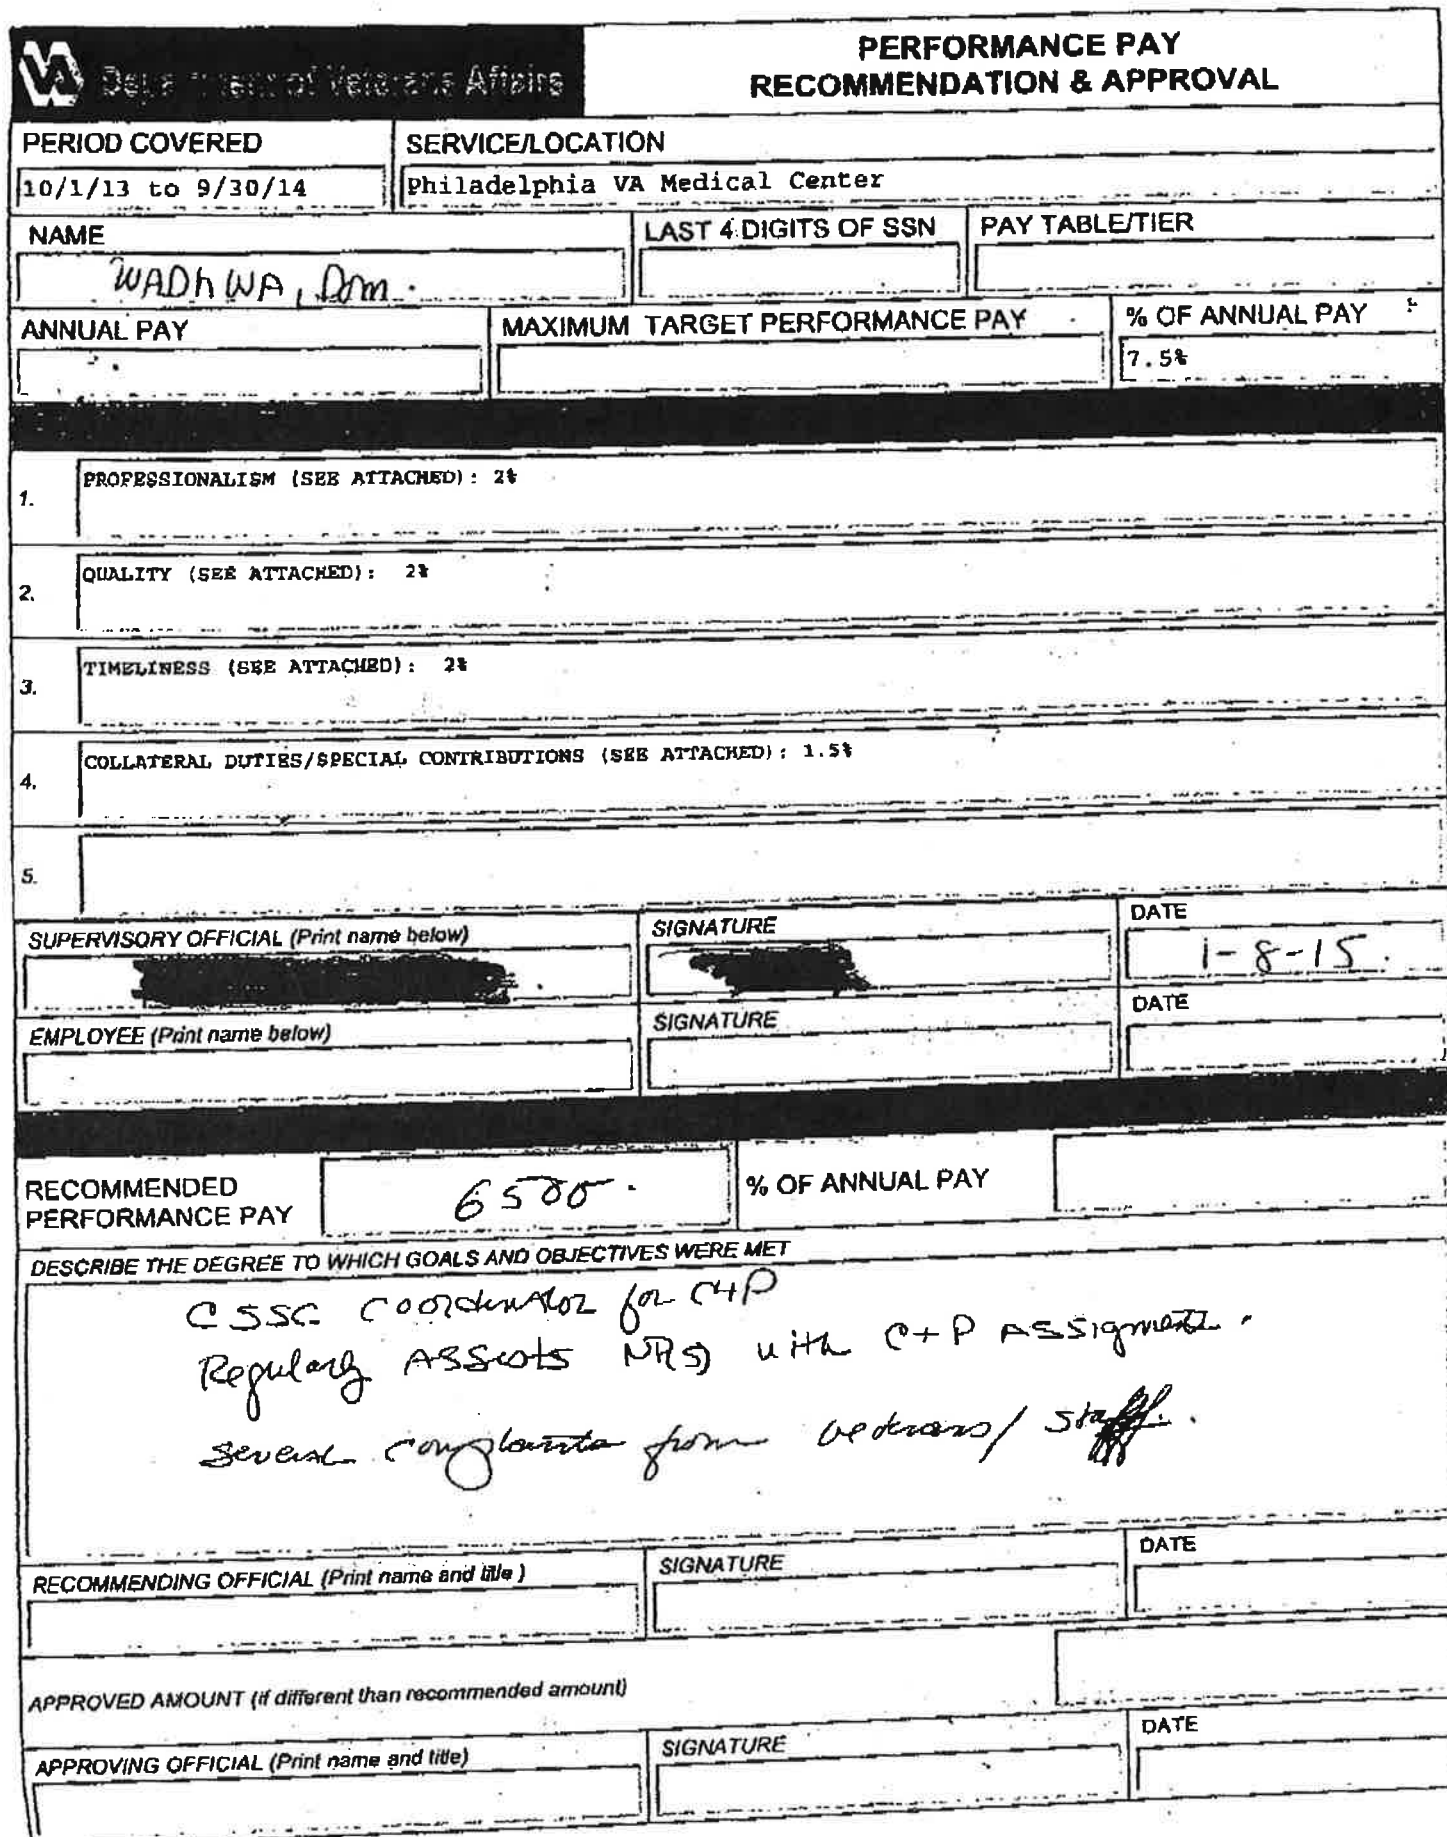 VA Department of Veterans Affairs
PERFORMANCE PAY
RECOMMENDATION & APPROVAL
PERIOD COVERED
SERVICE/LOCATION
10/1/13 to 9/30/14
Philadelphia VA Medical Center
NAME
LAST 4 DIGITS OF SSN
PAY TABLE/TIER
WADhWA, Dom.
ANNUAL PAY
MAXIMUM TARGET PERFORMANCE PAY
% OF ANNUAL PAY
7.5%
1. PROFESSIONALISM (SEE ATTACHED): 2%
2. QUALITY (SEE ATTACHED): 2%
3. TIMELINESS (SEE ATTACHED): 2%
4. COLLATERAL DUTIES/SPECIAL CONTRIBUTIONS (SEE ATTACHED): 1.5%
5.
SUPERVISORY OFFICIAL (Print name below)
SIGNATURE
DATE
1-8-15.
EMPLOYEE (Print name below)
SIGNATURE
DATE
RECOMMENDED
PERFORMANCE PAY
6500.
% OF ANNUAL PAY
DESCRIBE THE DEGREE TO WHICH GOALS AND OBJECTIVES WERE MET
CSSC Coordinator for C+P
Regularly Assists with C+P Assigments.
Several complaints from veterans/ staff.
RECOMMENDING OFFICIAL (Print name and title )
SIGNATURE
DATE
APPROVED AMOUNT (if different than recommended amount)
APPROVING OFFICIAL (Print name and title)
SIGNATURE
DATE